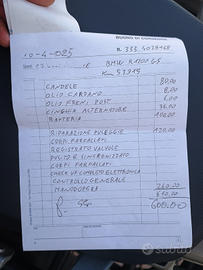 BUONO DI CONSEGNA
10-4-025
N. 333 5078468
BMW R1100 GS
Km 53919
CANDELE 80,00
OLIO CARDANO 8,00
OLIO FRENI POST 6,00
CINGHIA ALTERNATORE 36,00
BATTERIA 100,00
RIPARAZIONE PULEGGIE 120,00
CORPI FARFALLATI
REGISTRATO VALVOLE
PULITO E SINCRONIZZATO
CORPI FARFALLATI
CHECK UP COMPLETO ELETTRONICA
CONTROLLO GENERALE
MANODOPERA 260,00
610,00
600,00
subito